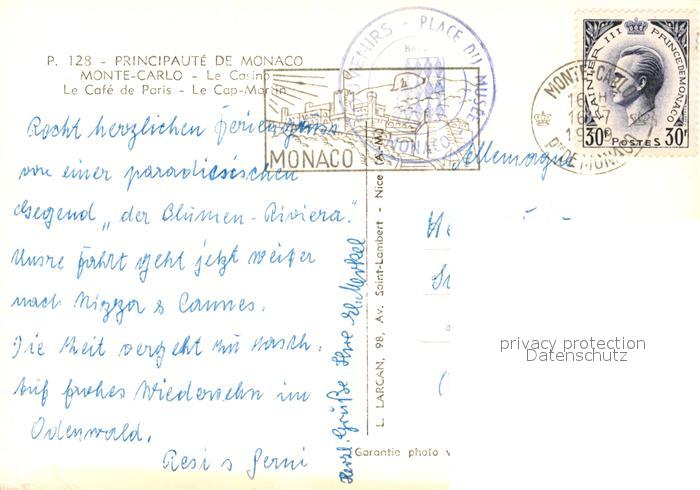 P. 128 - PRINCIPAUTÉ DE MONACO
MONTE-CARLO - Le Casino
Le Café de Paris - Le Cap-Martin
SOUVENIRS - PLACE DU MUSÉE
MONACO
MONACO
MONTE-CARLO
PTE DE MONACO
RAINIER III PRINCE DE MONACO
30F POSTES 30F
Recht herzlichen Feriengruss
von einer paradiesischen
Gegend „der Blumen-Riviera".
Unsre Fahrt geht jetzt weiter
nach Nizza & Cannes.
Die Zeit vergeht zu rasch.
Auf frohes Wiedersehn im
Odenwald.
Resi & Gerni
Herzl. Grüße Ihre
L. LARCAN, 98, Av. Saint-Lambert - Nice (A.-M.)
Allemagne
Garantie photo v
privacy protection
Datenschutz